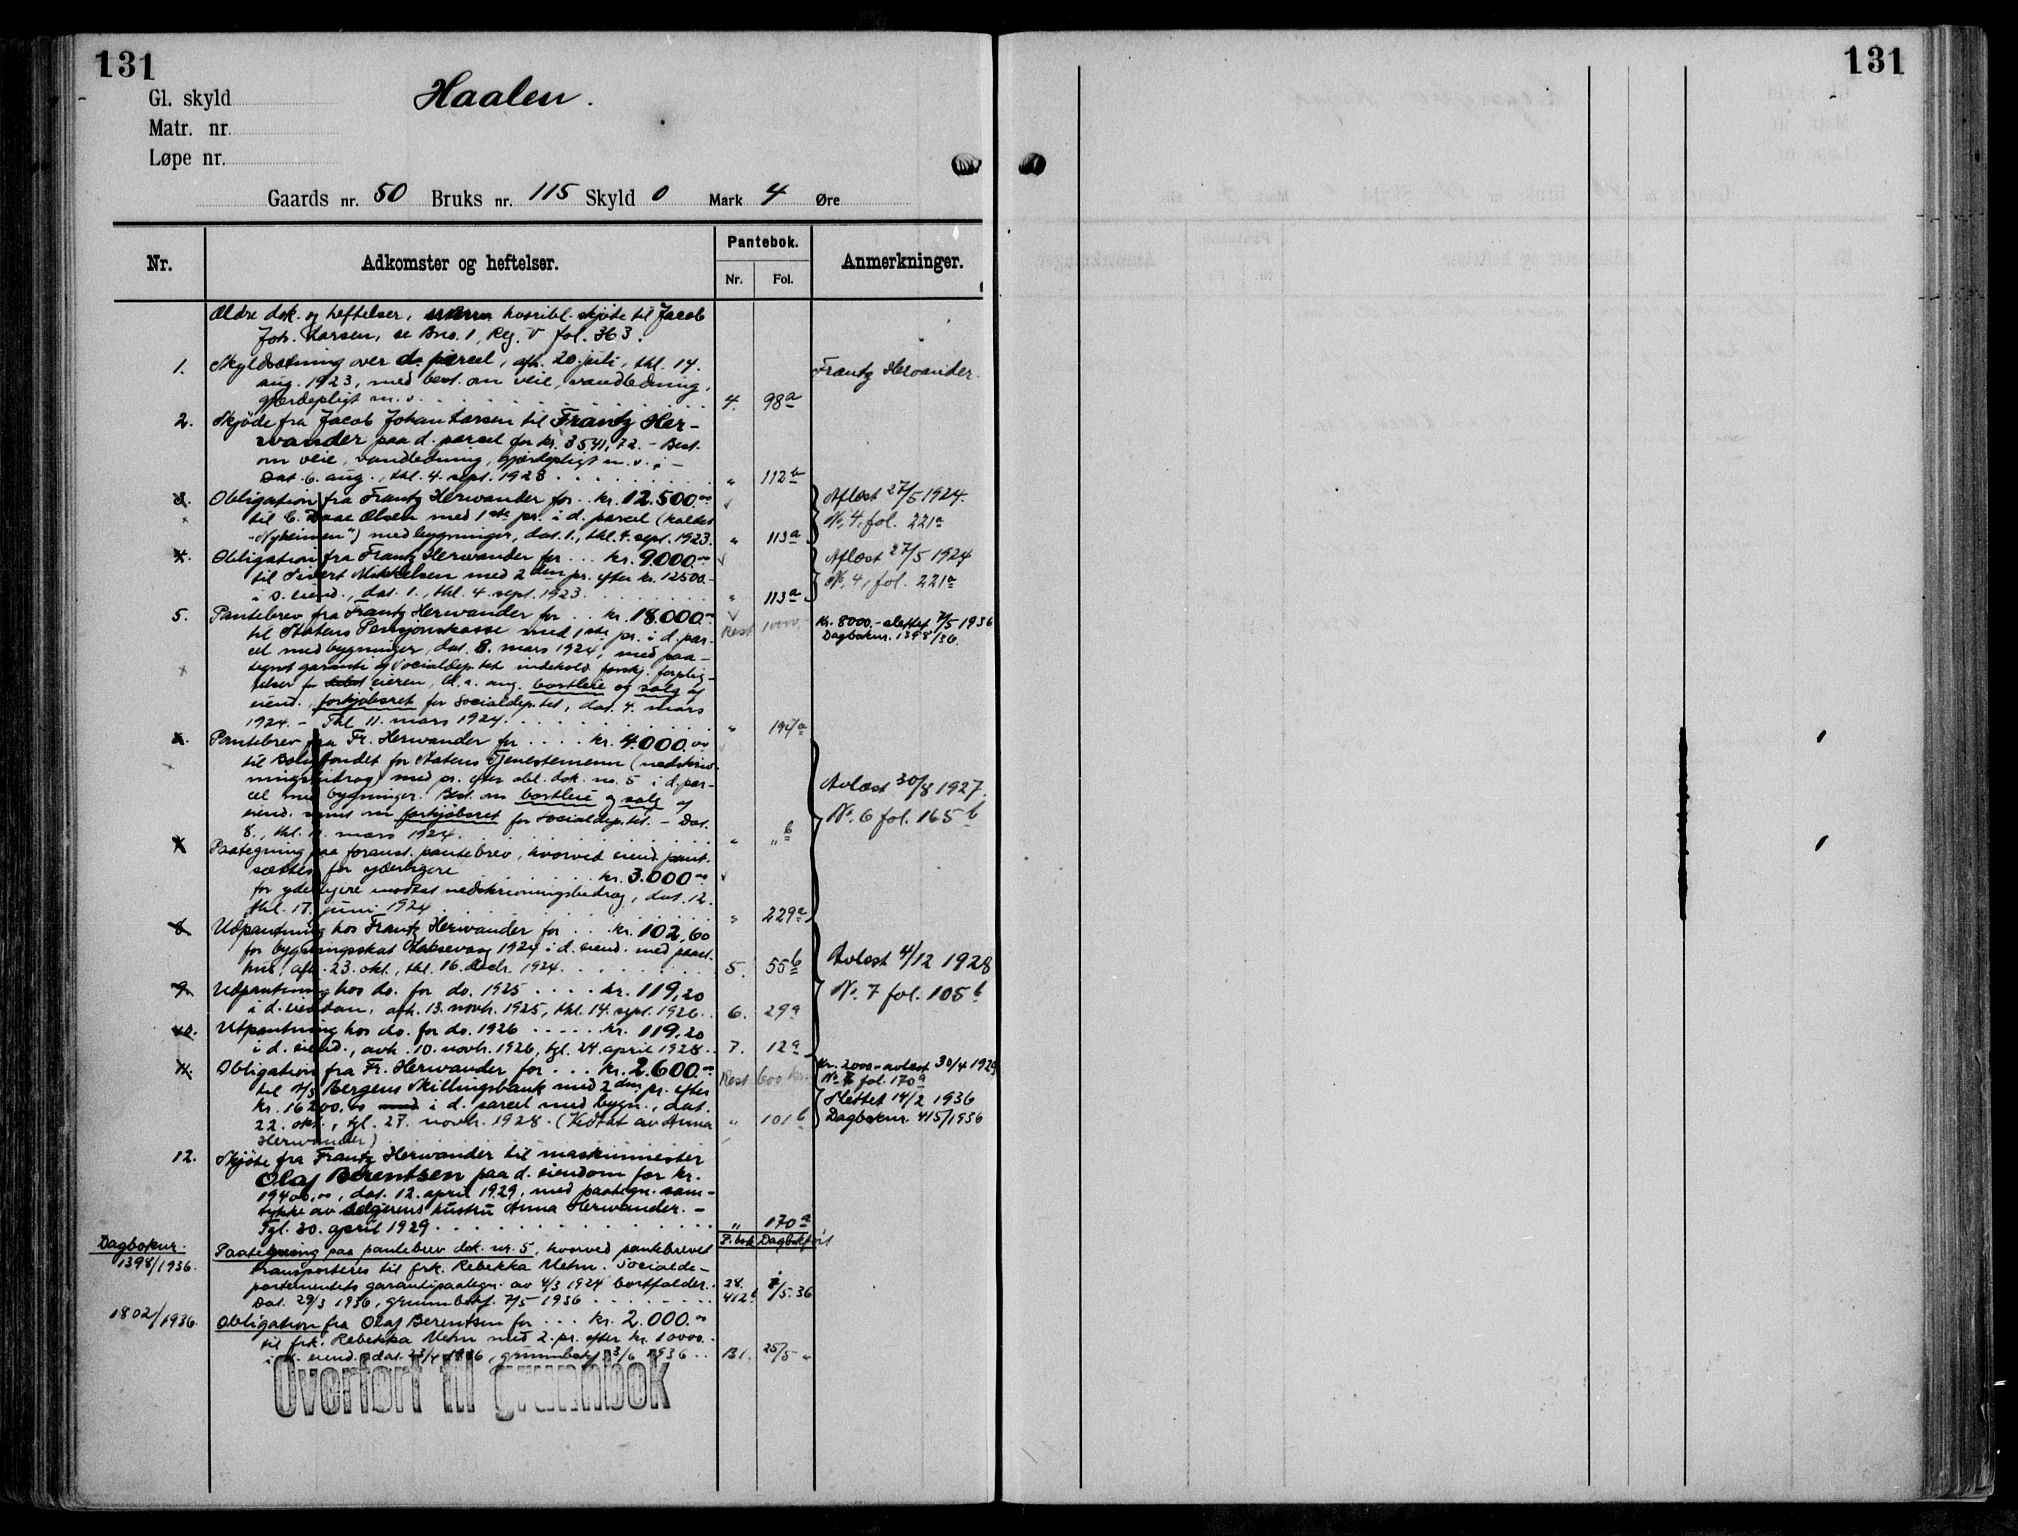 131
131
Gl. skyld
Haalen.
Matr. nr.
Løpe nr.
Gaards nr. 50 Bruks nr. 115 Skyld 0 Mark 4 Øre
Nr.
Adkomster og heftelser.
Pantebok.
Nr. Fol.
Anmerkninger.
Ældre dok. og heftelser, hvoribl. skjøte til Jacob
Joh. Larsen, se Bno. 1, Reg. V fol. 363.
1. Skyldsætning over d. parcel, afh. 20. juli, thl. 14. Frantz Herwander.
aug. 1923, med best. om veie, vandledning,
gjerdepligt m. v. 4. 98a
2. Skjøde fra Jacob Johan Larsen til Frantz Her-
wander paa d. parcel for kr. 3541,72. - Best.
om veie, vandledning, gjerdepligt m. v. -
Dat. 6. aug., thl. 4. sept. 1923 " 112b
3. Obligation fra Frantz Herwander for kr. 12.500.00 Aflæst 27/5 1924.
til C. Daae Olsen med 1ste pr. i d. parcel (kaldet No. 4, fol. 221a
"Nyheimen") med bygninger, dat. 1., thl. 4. sept. 1923. " 113a
4. Obligation fra Frantz Herwander for kr. 9.000.00 Aflæst 27/5 1924
til Sivert Mikkelsen med 2den pr. efter kr. 12500.- No. 4, fol. 221a
i s. eiend., dat. 1., thl. 4. sept. 1923. " 113a
5. Pantebrev fra Frantz Herwander for kr. 18.000.00 Rest 10000.- Kr. 8000.- slettet 7/5 1936
til Statens Pensjonskasse med 1ste pr. i d. par- Dagboknr. 1398/36.
cel med bygninger, dat. 8. mars 1924, med paa-
tegnet garanti af Socialdep.tet indehold. forskj. forplig-
telser for eieren, bl. a. ang. bortleie og salg af
eiend., forkjøbsret for Socialdep.tet, dat. 4. mars
1924. - Thl. 11. mars 1924. " 197a
6. Pantebrev fra Fr. Herwander for kr. 4.000.00
til Boligfondet for Statens Tjenestemenn (nedskriv-
ningsbidrag) med pr. efter obl. dok. no. 5 i d. par- Avlæst 30/8 1927.
cel med bygninger. Best. om bortleie og salg af No. 6 fol. 165b
eiend. samt om forkjøbsret for Socialdep.tet. - Dat.
8., thl. 11. mars 1924. " " b
7. Paategning paa foranst. pantebrev, hvorved eiend. pant-
sættes for yderligere kr. 3.000.00
for yderligere mottat nedskrivningsbidrag, dat. 12.
thl. 17. juni 1924 " 229a
8. Udpantning hos Frantz Herwander for kr. 102,60
for bygningsskat Laksevaag 1924 i d. eiend. med paast. Avlæst 4/12 1928
hus, afh. 23. okt., thl. 16. decbr. 1924. 5. 55b
9. Udpantning hos do. for do. 1925 kr. 119,20 No. 7 fol. 105b
i d. eiendom, afh. 13. novbr. 1925, thl. 14. sept. 1926. 6. 29a
10. Utpantning hos do. for do. 1926 kr. 119,20
i d. eiend., avh. 10. novbr. 1926, tgl. 24. april 1928. 7. 12a
11. Obligation fra Fr. Herwander for kr. 2.600.00 Rest 600 kr. Kr. 2000.- avlæst 30/4 1929
til A/S Bergens Skillingsbank med 2den pr. efter No. 7 fol. 170a
kr. 16200.00 i d. parcel med bygn., dat. Slettet 14/2 1936
22. okt., tgl. 27. novbr. 1928. (Vedtat av Anna " 101b Dagboknr. 415/1936
Herwander)
12. Skjøte fra Frantz Herwander til maskinmester
Olaf Berentsen paa d. eiendom for kr.
19400.00, dat. 12. april 1929, med paategn. sam-
tykke av selgerens hustru Anna Herwander. -
Tgl. 30. april 1929 " 170a
Dagboknr. P.bok Dagbokført
1398/1936. Paategning paa pantebrev dok. nr. 5, hvorved pantebrevet
transporteres til frk. Rebekka Mehn. Socialde-
partementets garantipaategn. av 4/3 1924 bortfalder. 28.
Dat. 29/3 1936, grunnbokf. 7/5 1936 412b 7/5.36
1802/1936. Obligation fra Olaf Berentsen for kr. 2.000.00
til frk. Rebekka Mehn med 2. pr. efter kr. 10000.-
i d. eiend., dat. 23/4 1936, grunnbokf. 3/6 1936 B1. 25/5 "
Overført til grunnbok